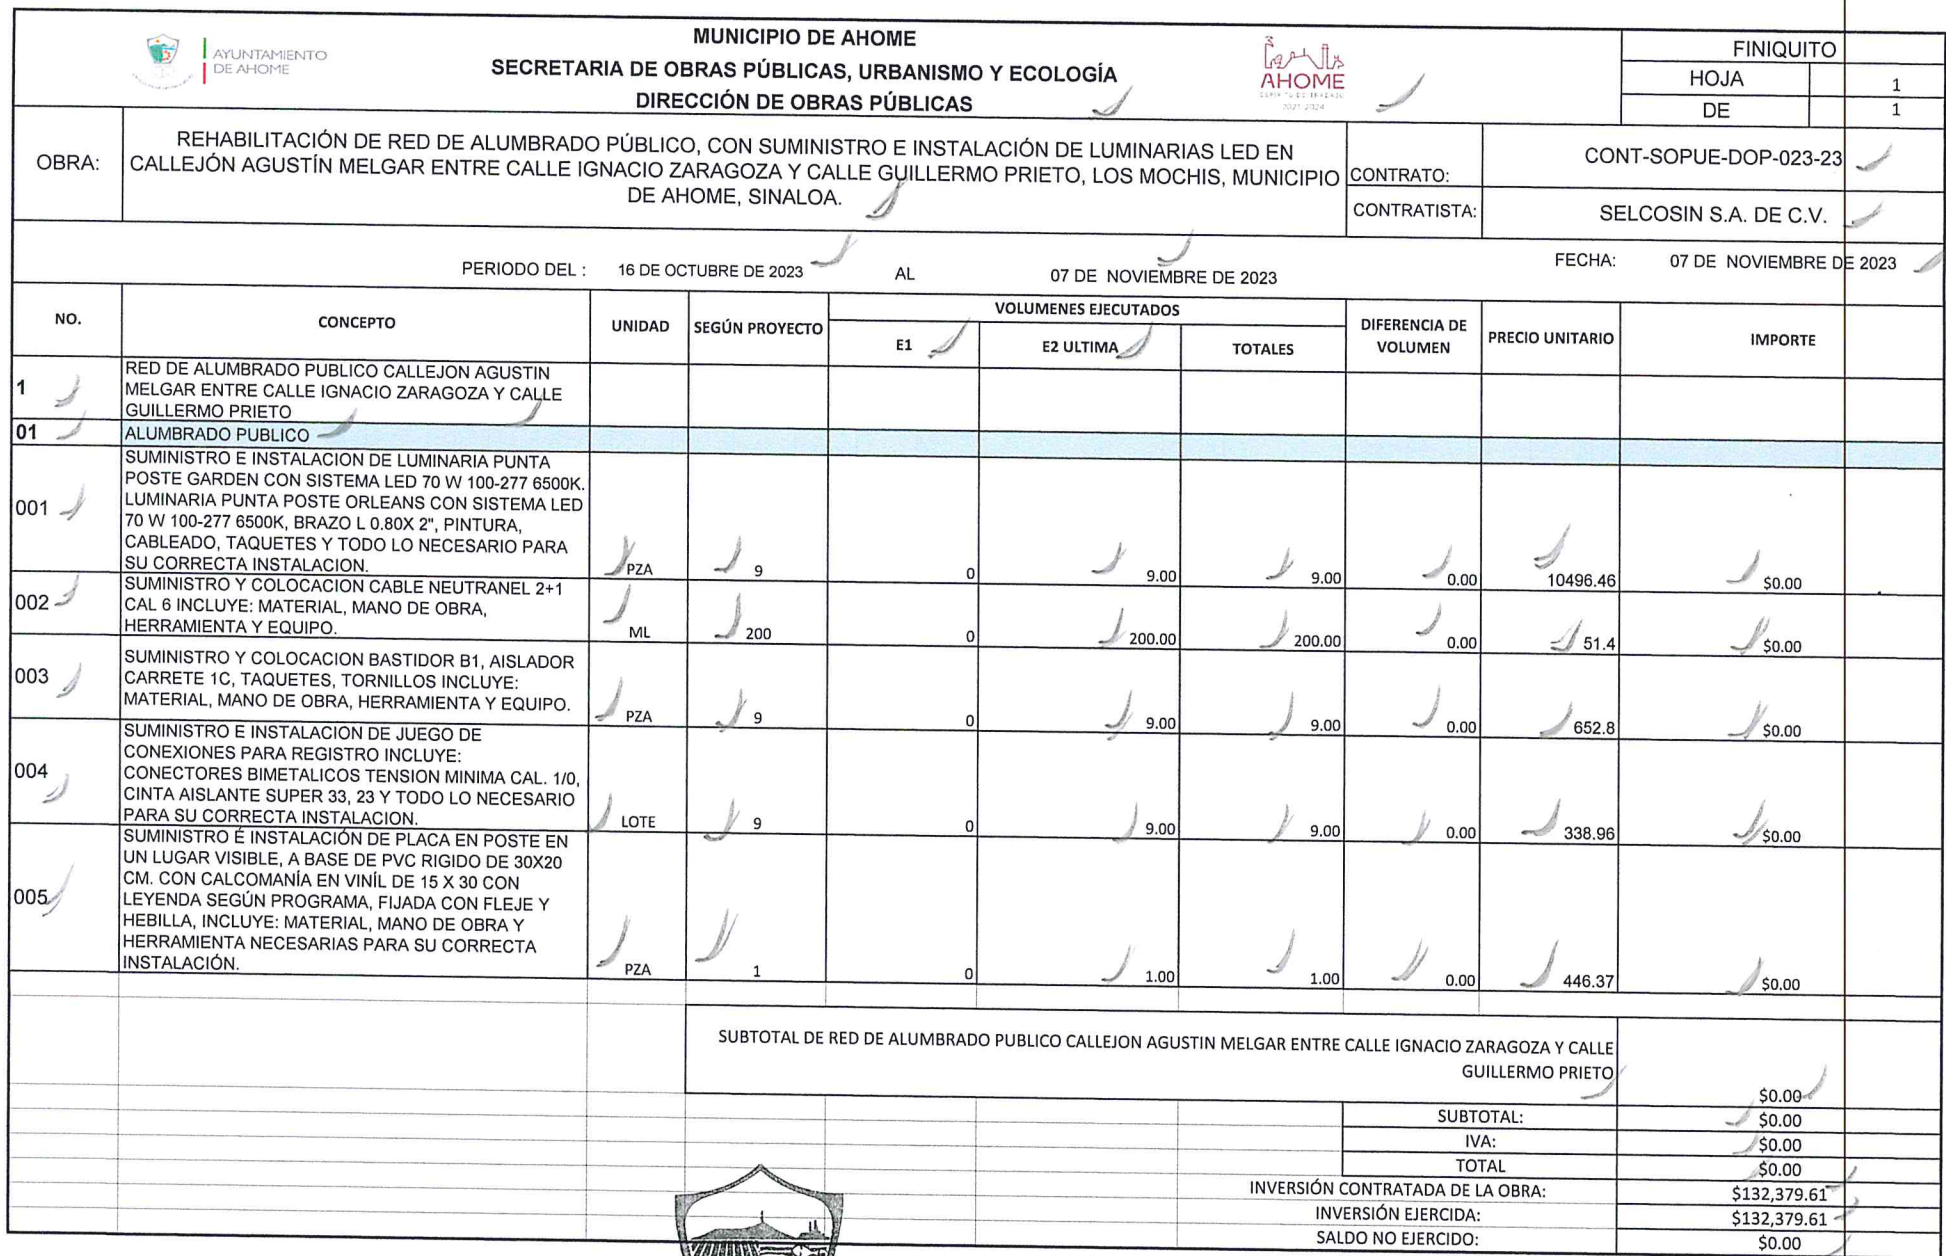 AYUNTAMIENTO
DE AHOME
MUNICIPIO DE AHOME
SECRETARIA DE OBRAS PÚBLICAS, URBANISMO Y ECOLOGÍA
DIRECCIÓN DE OBRAS PÚBLICAS
AHOME
2021-2024
FINIQUITO
HOJA 1
DE 1
OBRA:
REHABILITACIÓN DE RED DE ALUMBRADO PÚBLICO, CON SUMINISTRO E INSTALACIÓN DE LUMINARIAS LED EN
CALLEJÓN AGUSTÍN MELGAR ENTRE CALLE IGNACIO ZARAGOZA Y CALLE GUILLERMO PRIETO, LOS MOCHIS, MUNICIPIO
DE AHOME, SINALOA.
CONTRATO: CONT-SOPUE-DOP-023-23
CONTRATISTA: SELCOSIN S.A. DE C.V.
PERIODO DEL : 16 DE OCTUBRE DE 2023 AL 07 DE NOVIEMBRE DE 2023 FECHA: 07 DE NOVIEMBRE DE 2023
NO. CONCEPTO UNIDAD SEGÚN PROYECTO VOLUMENES EJECUTADOS DIFERENCIA DE VOLUMEN PRECIO UNITARIO IMPORTE
E1 E2 ULTIMA TOTALES
1
RED DE ALUMBRADO PUBLICO CALLEJON AGUSTIN
MELGAR ENTRE CALLE IGNACIO ZARAGOZA Y CALLE
GUILLERMO PRIETO
01 ALUMBRADO PUBLICO
001
SUMINISTRO E INSTALACION DE LUMINARIA PUNTA
POSTE GARDEN CON SISTEMA LED 70 W 100-277 6500K.
LUMINARIA PUNTA POSTE ORLEANS CON SISTEMA LED
70 W 100-277 6500K, BRAZO L 0.80X 2", PINTURA,
CABLEADO, TAQUETES Y TODO LO NECESARIO PARA
SU CORRECTA INSTALACION.
PZA 9 0 9.00 9.00 0.00 10496.46 $0.00
002
SUMINISTRO Y COLOCACION CABLE NEUTRANEL 2+1
CAL 6 INCLUYE: MATERIAL, MANO DE OBRA,
HERRAMIENTA Y EQUIPO.
ML 200 0 200.00 200.00 0.00 51.4 $0.00
003
SUMINISTRO Y COLOCACION BASTIDOR B1, AISLADOR
CARRETE 1C, TAQUETES, TORNILLOS INCLUYE:
MATERIAL, MANO DE OBRA, HERRAMIENTA Y EQUIPO.
PZA 9 0 9.00 9.00 0.00 652.8 $0.00
004
SUMINISTRO E INSTALACION DE JUEGO DE
CONEXIONES PARA REGISTRO INCLUYE:
CONECTORES BIMETALICOS TENSION MINIMA CAL. 1/0,
CINTA AISLANTE SUPER 33, 23 Y TODO LO NECESARIO
PARA SU CORRECTA INSTALACION.
LOTE 9 0 9.00 9.00 0.00 338.96 $0.00
005
SUMINISTRO É INSTALACIÓN DE PLACA EN POSTE EN
UN LUGAR VISIBLE, A BASE DE PVC RIGIDO DE 30X20
CM. CON CALCOMANÍA EN VINÍL DE 15 X 30 CON
LEYENDA SEGÚN PROGRAMA, FIJADA CON FLEJE Y
HEBILLA, INCLUYE: MATERIAL, MANO DE OBRA Y
HERRAMIENTA NECESARIAS PARA SU CORRECTA
INSTALACIÓN.
PZA 1 0 1.00 1.00 0.00 446.37 $0.00
SUBTOTAL DE RED DE ALUMBRADO PUBLICO CALLEJON AGUSTIN MELGAR ENTRE CALLE IGNACIO ZARAGOZA Y CALLE
GUILLERMO PRIETO
$0.00
SUBTOTAL: $0.00
IVA: $0.00
TOTAL $0.00
INVERSIÓN CONTRATADA DE LA OBRA: $132,379.61
INVERSIÓN EJERCIDA: $132,379.61
SALDO NO EJERCIDO: $0.00